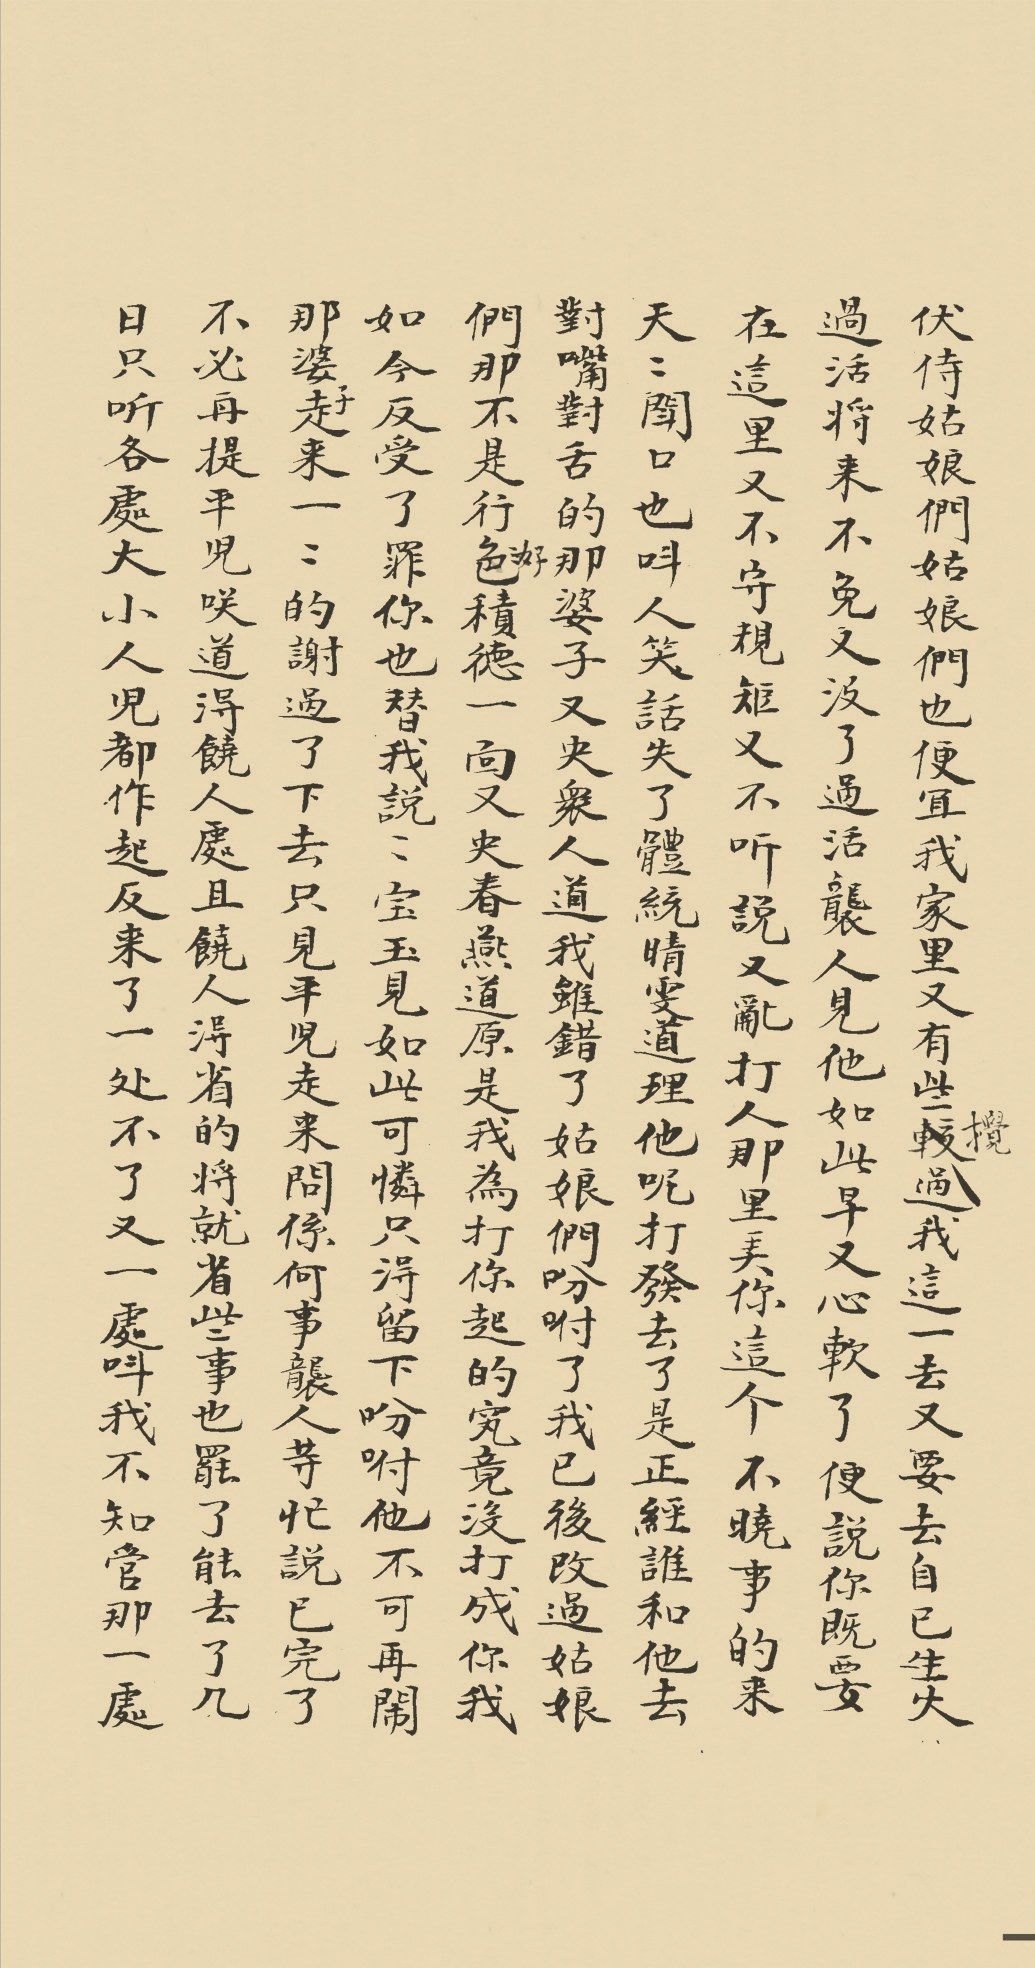 伏侍姑娘們姑娘們也便宜我家里又有些較過攪我這一去又要去自已生火
過活将来不免又没了過活襲人見他如此早又心軟了便説你既要
在這里又不守規矩又不听説又亂打人那里弄你這个不曉事的来
天〻闘口也呌人笑話失了體統晴雯道理他呢打發去了是正經誰和他去
對嘴對舌的那婆子又央衆人道我雖錯了姑娘們吩咐了我已後改過姑娘
們那不是行好色積德一向又央春燕道原是我為打你起的究竟没打成你我
如今反受了罪你也替我説〻宝玉見如此可憐只淂留下吩咐他不可再鬧
那婆子走来一〻的謝過了下去只見平児走来問係何事襲人䓁忙説已完了
不必再提平児咲道淂饒人處且饒人淂省的将就省些事也罷了能去了几
日只听各處大小人児都作起反来了一处不了又一處呌我不知管那一處